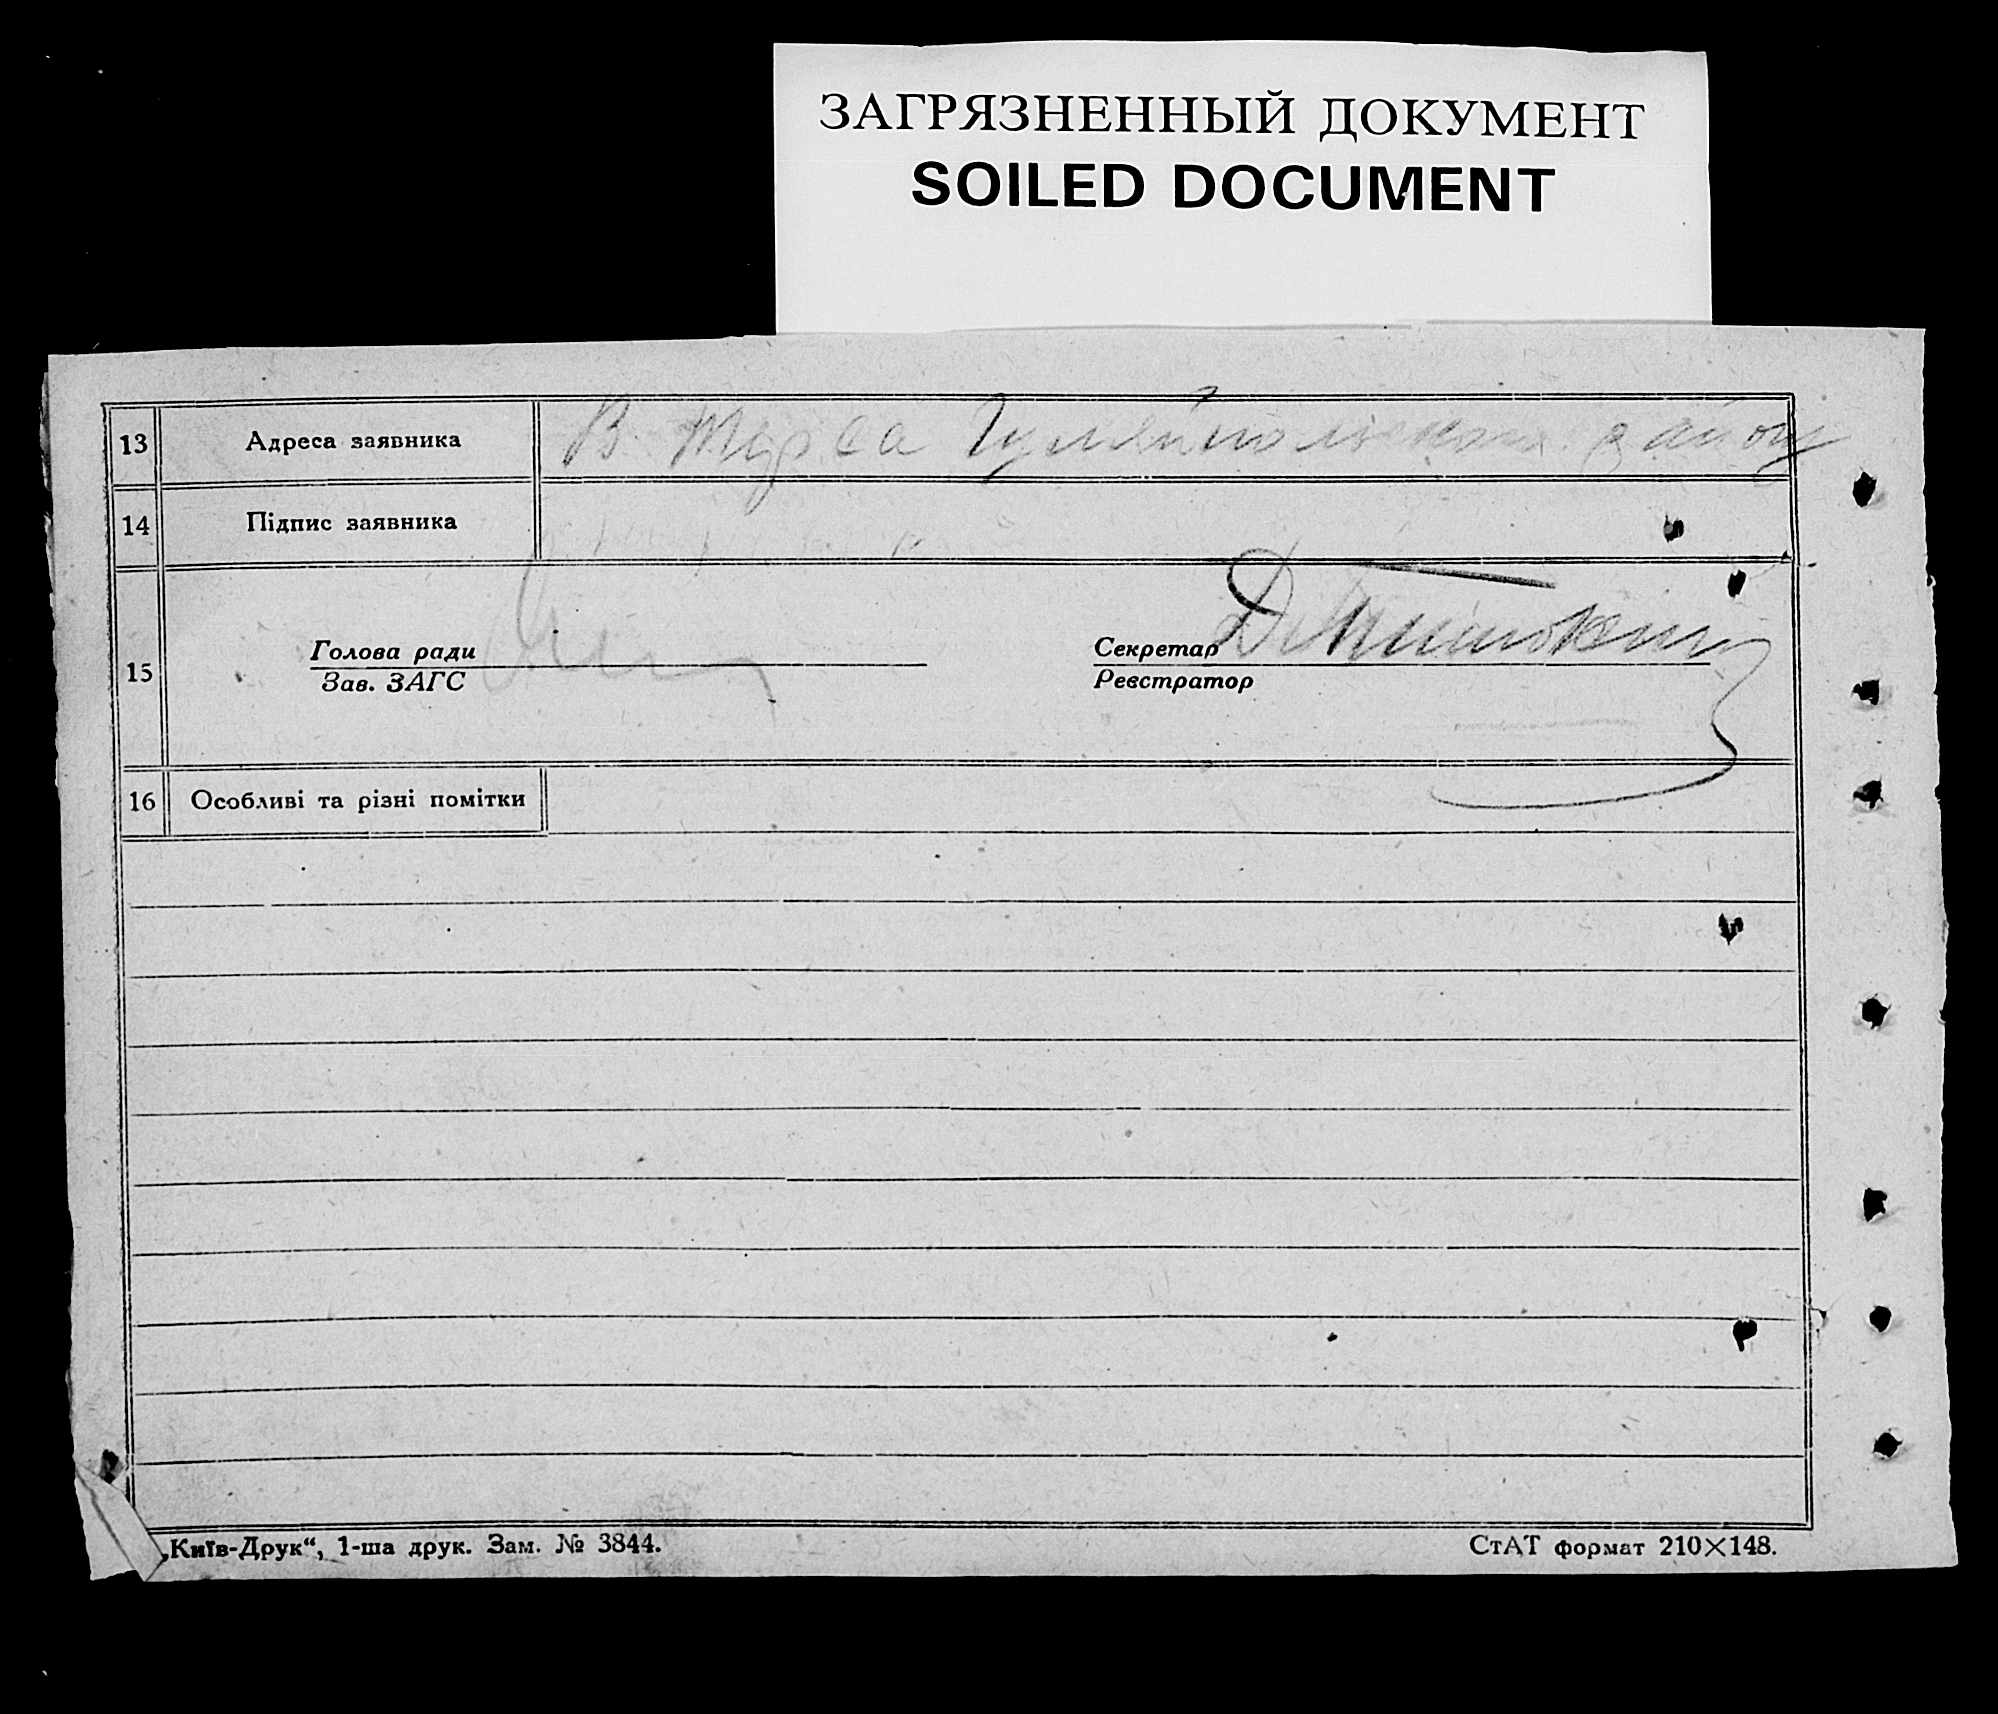 ЗАГРЯЗНЕННЫЙ ДОКУМЕНТ
SOILED DOCUMENT
13 Адреса заявника В.
14 Підпис заявника
Голова ради Секретар
15
Зав. ЗАГС Реєстратор
16 Особливі та різні помітки
„Київ-Друк“, 1-ша друк. Зам. № 3844. СтАТ формат 210×148.